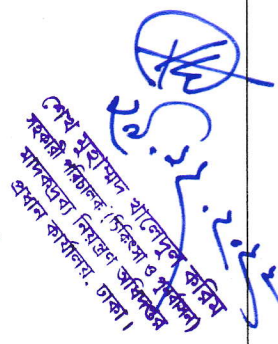 শেখ মুহাম্মদ খালেদুল করিম
সহকারী পরিচালক (চিকিৎসা ও পুনর্বাসন)
মাদকদ্রব্য নিয়ন্ত্রণ অধিদপ্তর
প্রধান কার্যালয়, ঢাকা।